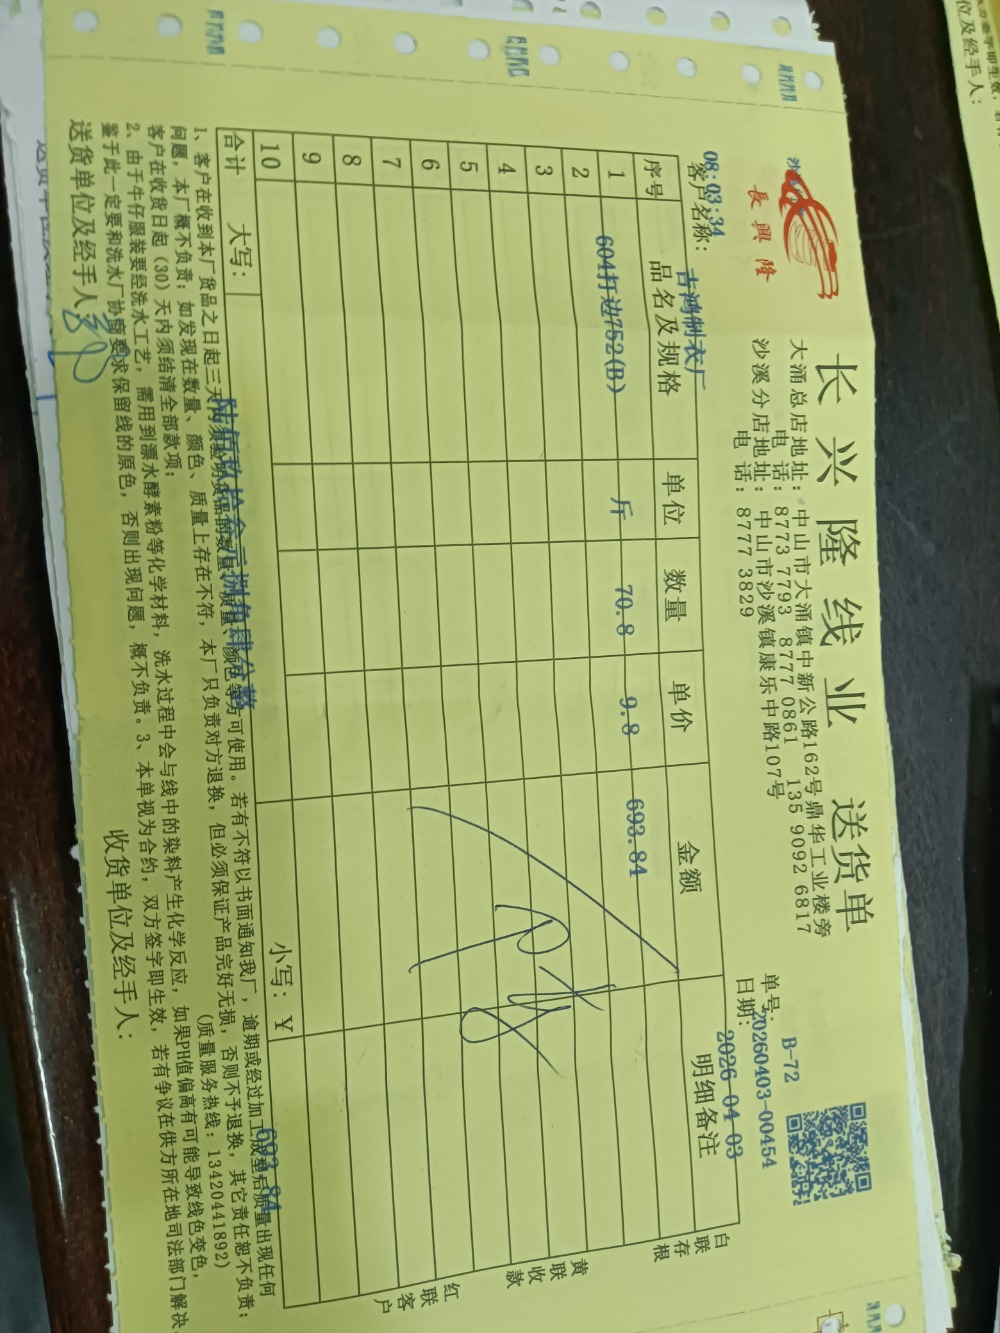 长兴隆线业 送货单
長興隆
大涌总店地址：中山市大涌镇中新公路162号鼎华工业楼旁
电 话：8773 7793 8777 0861 135 9092 6817
沙溪分店地址：中山市沙溪镇康乐中路107号
电 话：8777 3829
B-72
单号：20260403-00454
日期：2026-04-03
08:03:34
客户名称：吉鸿制衣厂
序号 品名及规格 单位 数量 单价 金额 明细备注
1 604打边752(B) 斤 70.8 9.8 693.84
2
3
4
5
6
7
8
9
10
合计 大写：陆佰玖拾叁元捌角肆分整 小写：￥ 693.84
白联存根
黄联收款
红联客户
1、客户在收到本厂货品之日起三天内须验明货品的数量、质量、颜色等方可使用。若有不符以书面通知我厂，逾期或经过加工成型后质量出现任何
问题，本厂概不负责；如发现在数量、颜色、质量上存在不符，本厂只负责对方退换，但必须保证产品完好无损，否则不予退换，其它责任恕不负责；
客户在收货日起（30）天内须结清全部款项；（质量服务热线：13420441892）
2、由于牛仔服装要经洗水工艺，需用到漂水酵素粉等化学材料，洗水过程中会与线中的染料产生化学反应，如果PH值偏高有可能导致线色变色，
鉴于此一定要和洗水厂协商要求保留线的原色，否则出现问题，概不负责。3、本单视为合约，双方签字即生效，若有争议在供方所在地司法部门解决。
送货单位及经手人： 收货单位及经手人：
位及经手人：